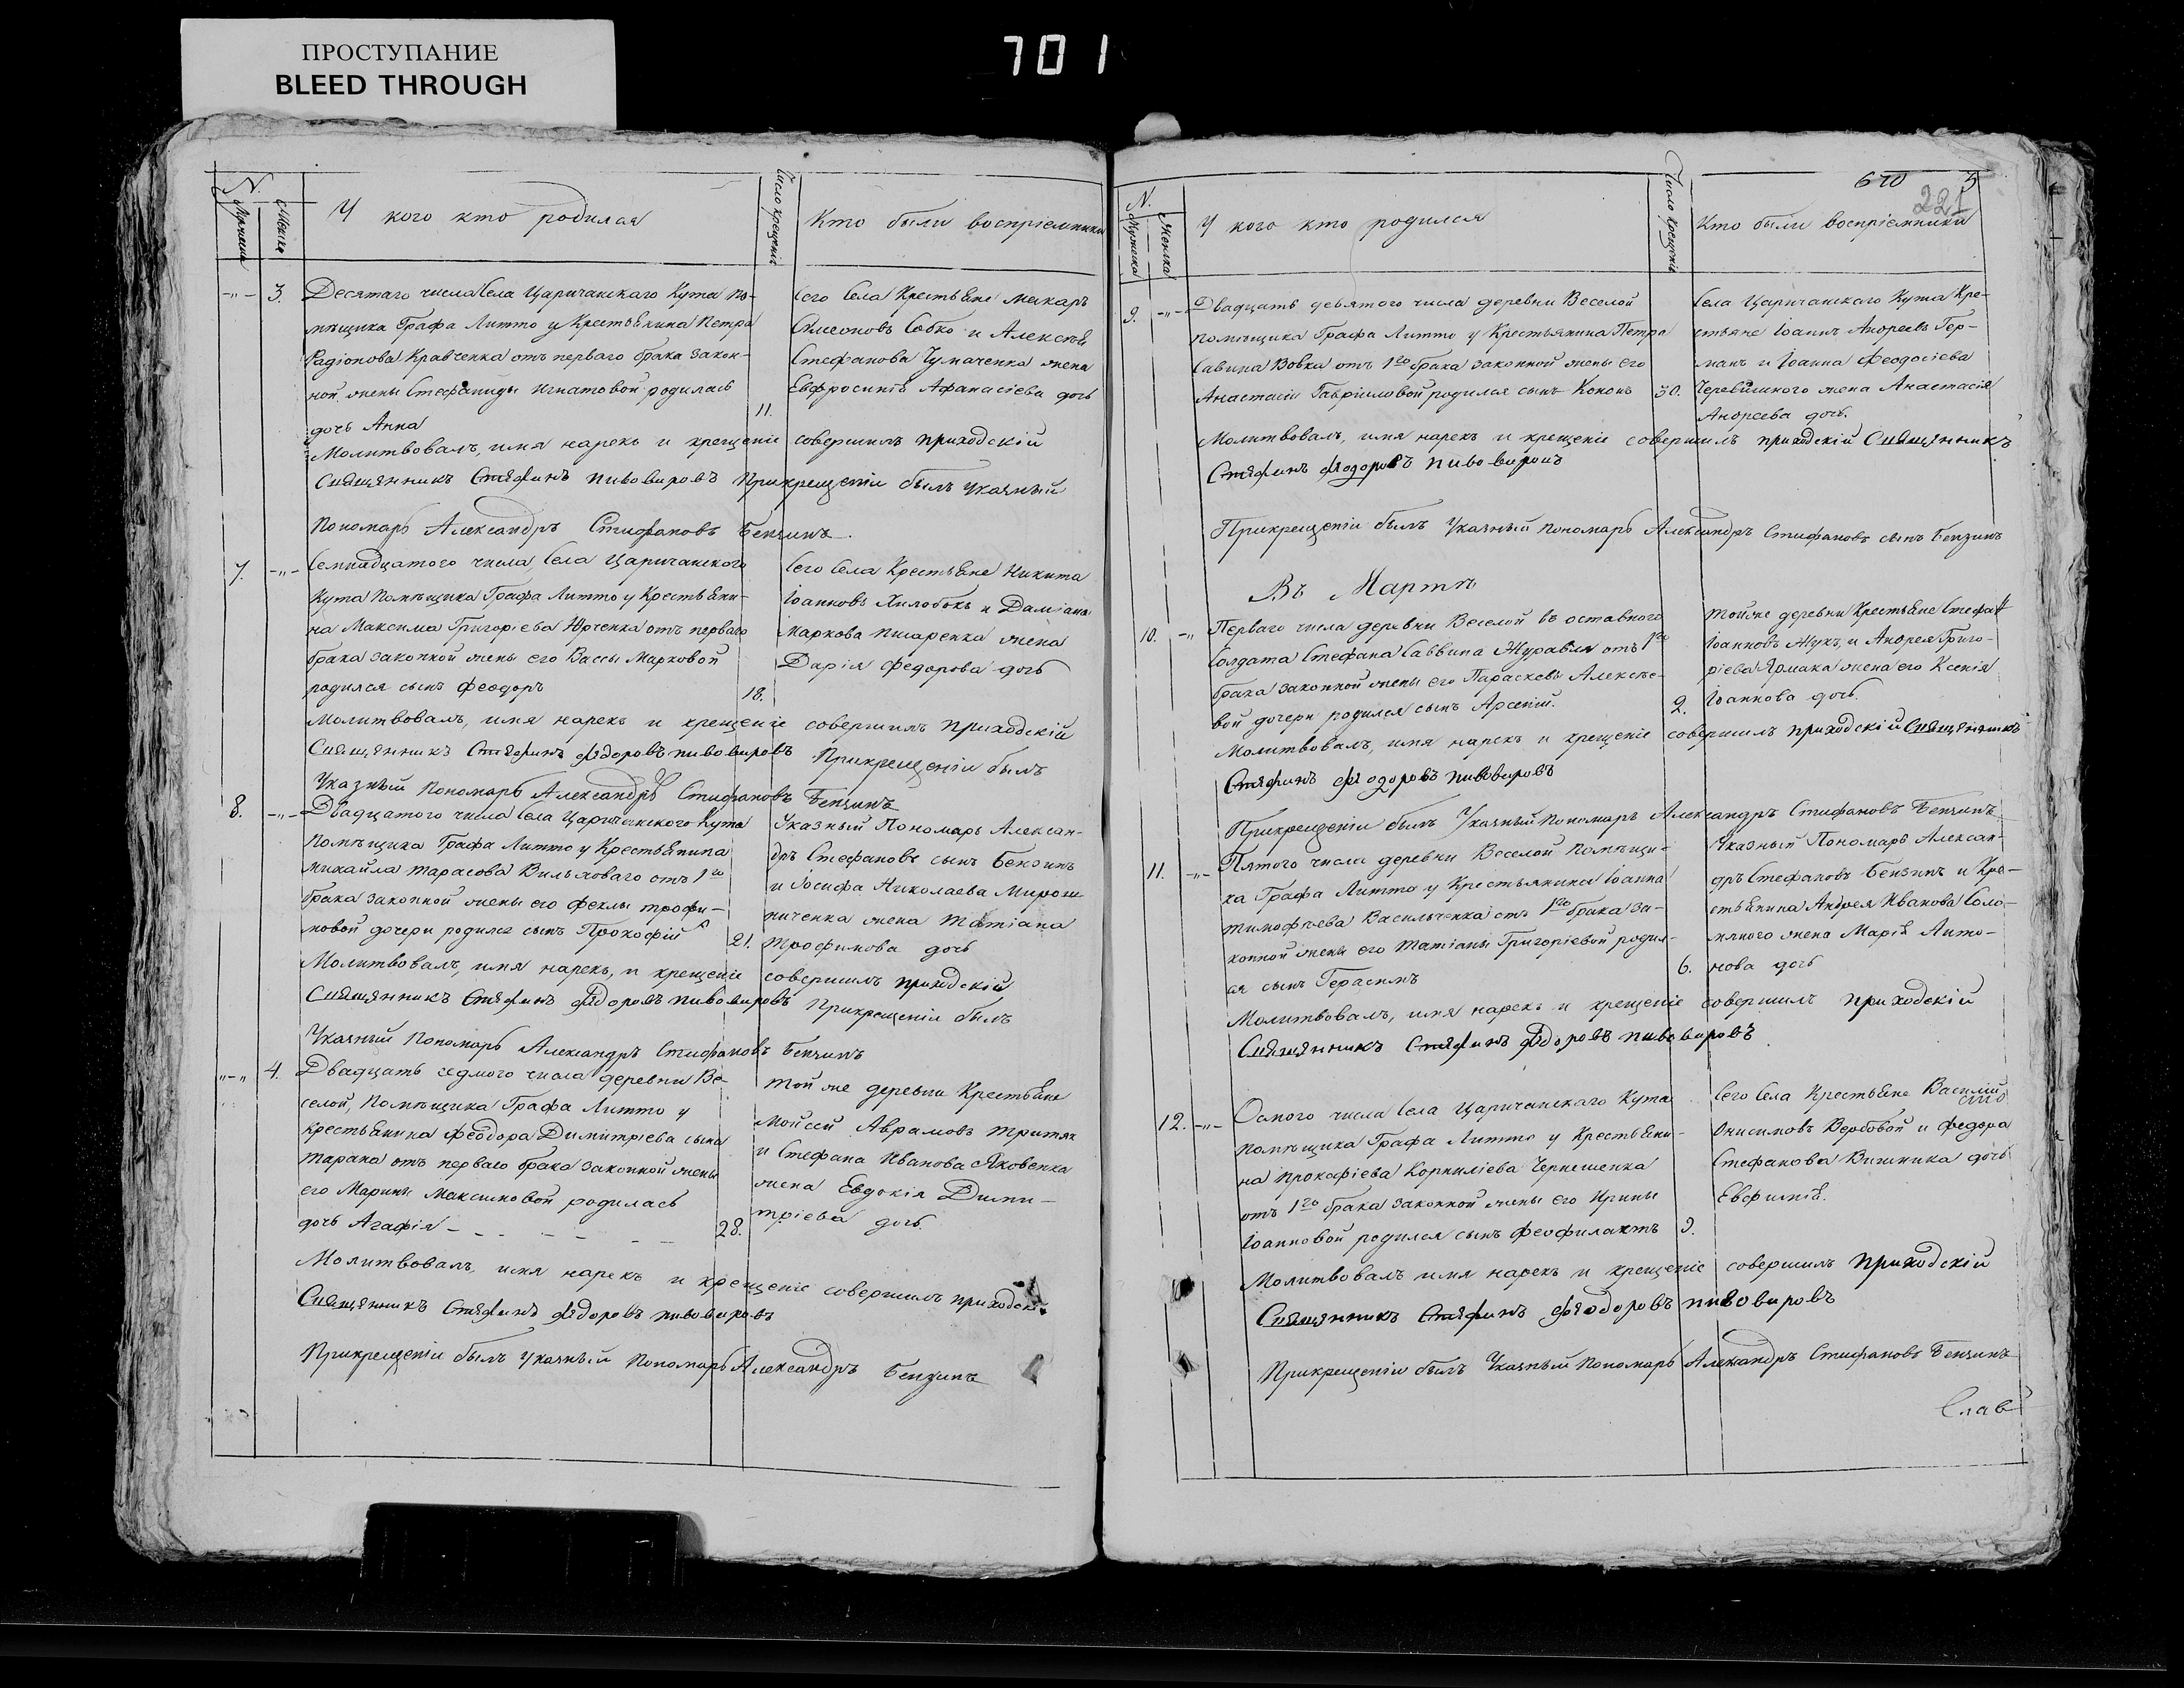 ПРОСТУПАНИЕ
BLEED THROUGH
701
N.
Мужеска
Женска
У кого кто родился
Число крещенія
Кто были воспріемники
3.
Десятаго числа Села Царичанскаго Кута по-
мѣщика Графа Литто у Крестьянина Петра
Радіонова Кравченка отъ перваго брака закон-
ной жены Стефаниды Игнатовой родилась
дочь Анна
11.
Сего Села Крестьяне Макаръ
Симеоновъ Собко и Алексѣя
Стефанова Чумаченка жена
Евфросинія Афанасіева дочь
Молитвовалъ, имя нарекъ и крещеніе совершилъ приходскій
Священникъ Стефанъ Пивоваровъ При крещеніи былъ Указный
Пономарь Александръ Стефановъ Бензинъ.
7.
Семнадцатого числа Села Царичанского
Кута Помѣщика Графа Литто у Крестьяни-
на Максима Григоріева Юрченка отъ перваго
брака законной жены его Вассы Марковой
родился сынъ Феодоръ
18.
Сего Села Крестьяне Никита
Іоанновъ Хилобокъ и Даміана
Маркова Писаренка жена
Дарія Федорова дочь
Молитвовалъ, имя нарекъ и крещеніе совершилъ приходскій
Священникъ Стефанъ Федоровъ Пивоваровъ При крещеніи былъ
Указный Пономарь Александръ Стефановъ Бензинъ
8.
Двадцатого числа Села Царичанского Кута
Помѣщика Графа Литто у Крестьянина
Михайла Тарасова Вильховаго отъ 1го
брака законной жены его Феклы Трофи-
мовой дочери родился сынъ Прокофій
21.
Указный Пономарь Алексан-
дръ Стефановъ сынъ Бензинъ
и Іосифа Николаева Мирош-
ниченка жена Татіана
Трофимова дочь
Молитвовалъ, имя нарекъ, и крещеніе совершилъ приходскій
Священникъ Стефанъ Федоровъ Пивоваровъ При крещеніи былъ
Указный Пономарь Александръ Стефановъ Бензинъ
4.
Двадцать седмого числа деревни Ве-
селой, Помѣщика Графа Литто у
крестьянина Феодора Димитріева сына
Тарана отъ перваго брака законной жены
его Марины Максимовой родилась
дочь Агафія
28.
Той же деревни Крестьяне
Мойсей Аврамовъ Тритяк
и Стефана Иванова Яковенка
жена Евдокія Дими-
тріева дочь.
Молитвовалъ, имя нарекъ и крещеніе совершилъ приходскій
Священникъ Стефанъ Федоровъ Пивоваровъ
При крещеніи былъ Указный Пономарь Александръ Бензинъ
670
5
221
N.
Мужеска
Женска
У кого кто родился
Число крещенія
Кто были воспріемники
9.
Двадцать девятого числа деревни Веселой
помѣщика Графа Литто у Крестьянина Петра
Савина Вовка отъ 1го брака законной жены его
Анастасіи Гавриловой родился сынъ Кононъ
30.
Села Царичанского Кута Кре-
стьяне Іоаннъ Андреевъ Гер-
манъ и Іоанна Феодосіева
жена Анастасія
Андреева дочь.
Молитвовалъ, имя нарекъ и крещеніе совершилъ приходскій Священникъ
Стефанъ Феодоровъ Пивоваровъ
При крещеніи былъ Указный Пономарь Александръ Стефановъ сынъ Бензинъ
Въ Мартѣ
10.
Перваго числа деревни Веселой в оставного
Солдата Стефана Саввина Журавля отъ 1го
брака законной жены его Параскевы Алексѣе-
вой дочери родился сынъ Арсеній.
2.
Той же деревни Крестьяне Стефанъ
Іоанновъ Жукъ, и Андрея Григо-
ріева Ярмака жена его Ксенія
Іоаннова дочь.
Молитвовалъ, имя нарекъ и крещеніе совершилъ приходскій Священникъ
Стефанъ Феодоровъ Пивоваровъ
При крещеніи былъ Указный Пономарь Александръ Стефановъ Бензинъ
11.
Пятого числа деревни Веселой Помѣщи-
ка Графа Литто у Крестьянина Іоанна
Тимофеева Васильченка отъ 1го брака за-
конной жены его Татіаны Григоріевой родил-
ся сынъ Герасимъ
6.
Указный Пономарь Алексан-
дръ Стефановъ Бензинъ и Кре-
стьянина Андрея Иванова Соло-
мяного жена Марія Анто-
нова дочь
Молитвовалъ, имя нарекъ и крещеніе совершилъ приходскій
Священникъ Стефанъ Федоровъ Пивоваровъ
12.
Осмого числа Села Царичанскаго Кута
помѣщика Графа Литто у Крестьяни-
на Прокофіева Корниліева Чернешенка
отъ 1го брака законной жены его Ирины
Іоанновой родился сынъ Феофилактъ
9.
Сего Села Крестьяне Василій
Онисимовъ Вербовой и Федора
Стефанова Вишника дочь
Евфимія.
Молитвовалъ имя нарекъ и крещеніе совершилъ приходскій
Священникъ Стефанъ Феодоровъ Пивоваровъ
При крещеніи былъ Указный Пономарь Александръ Стефановъ Бензинъ